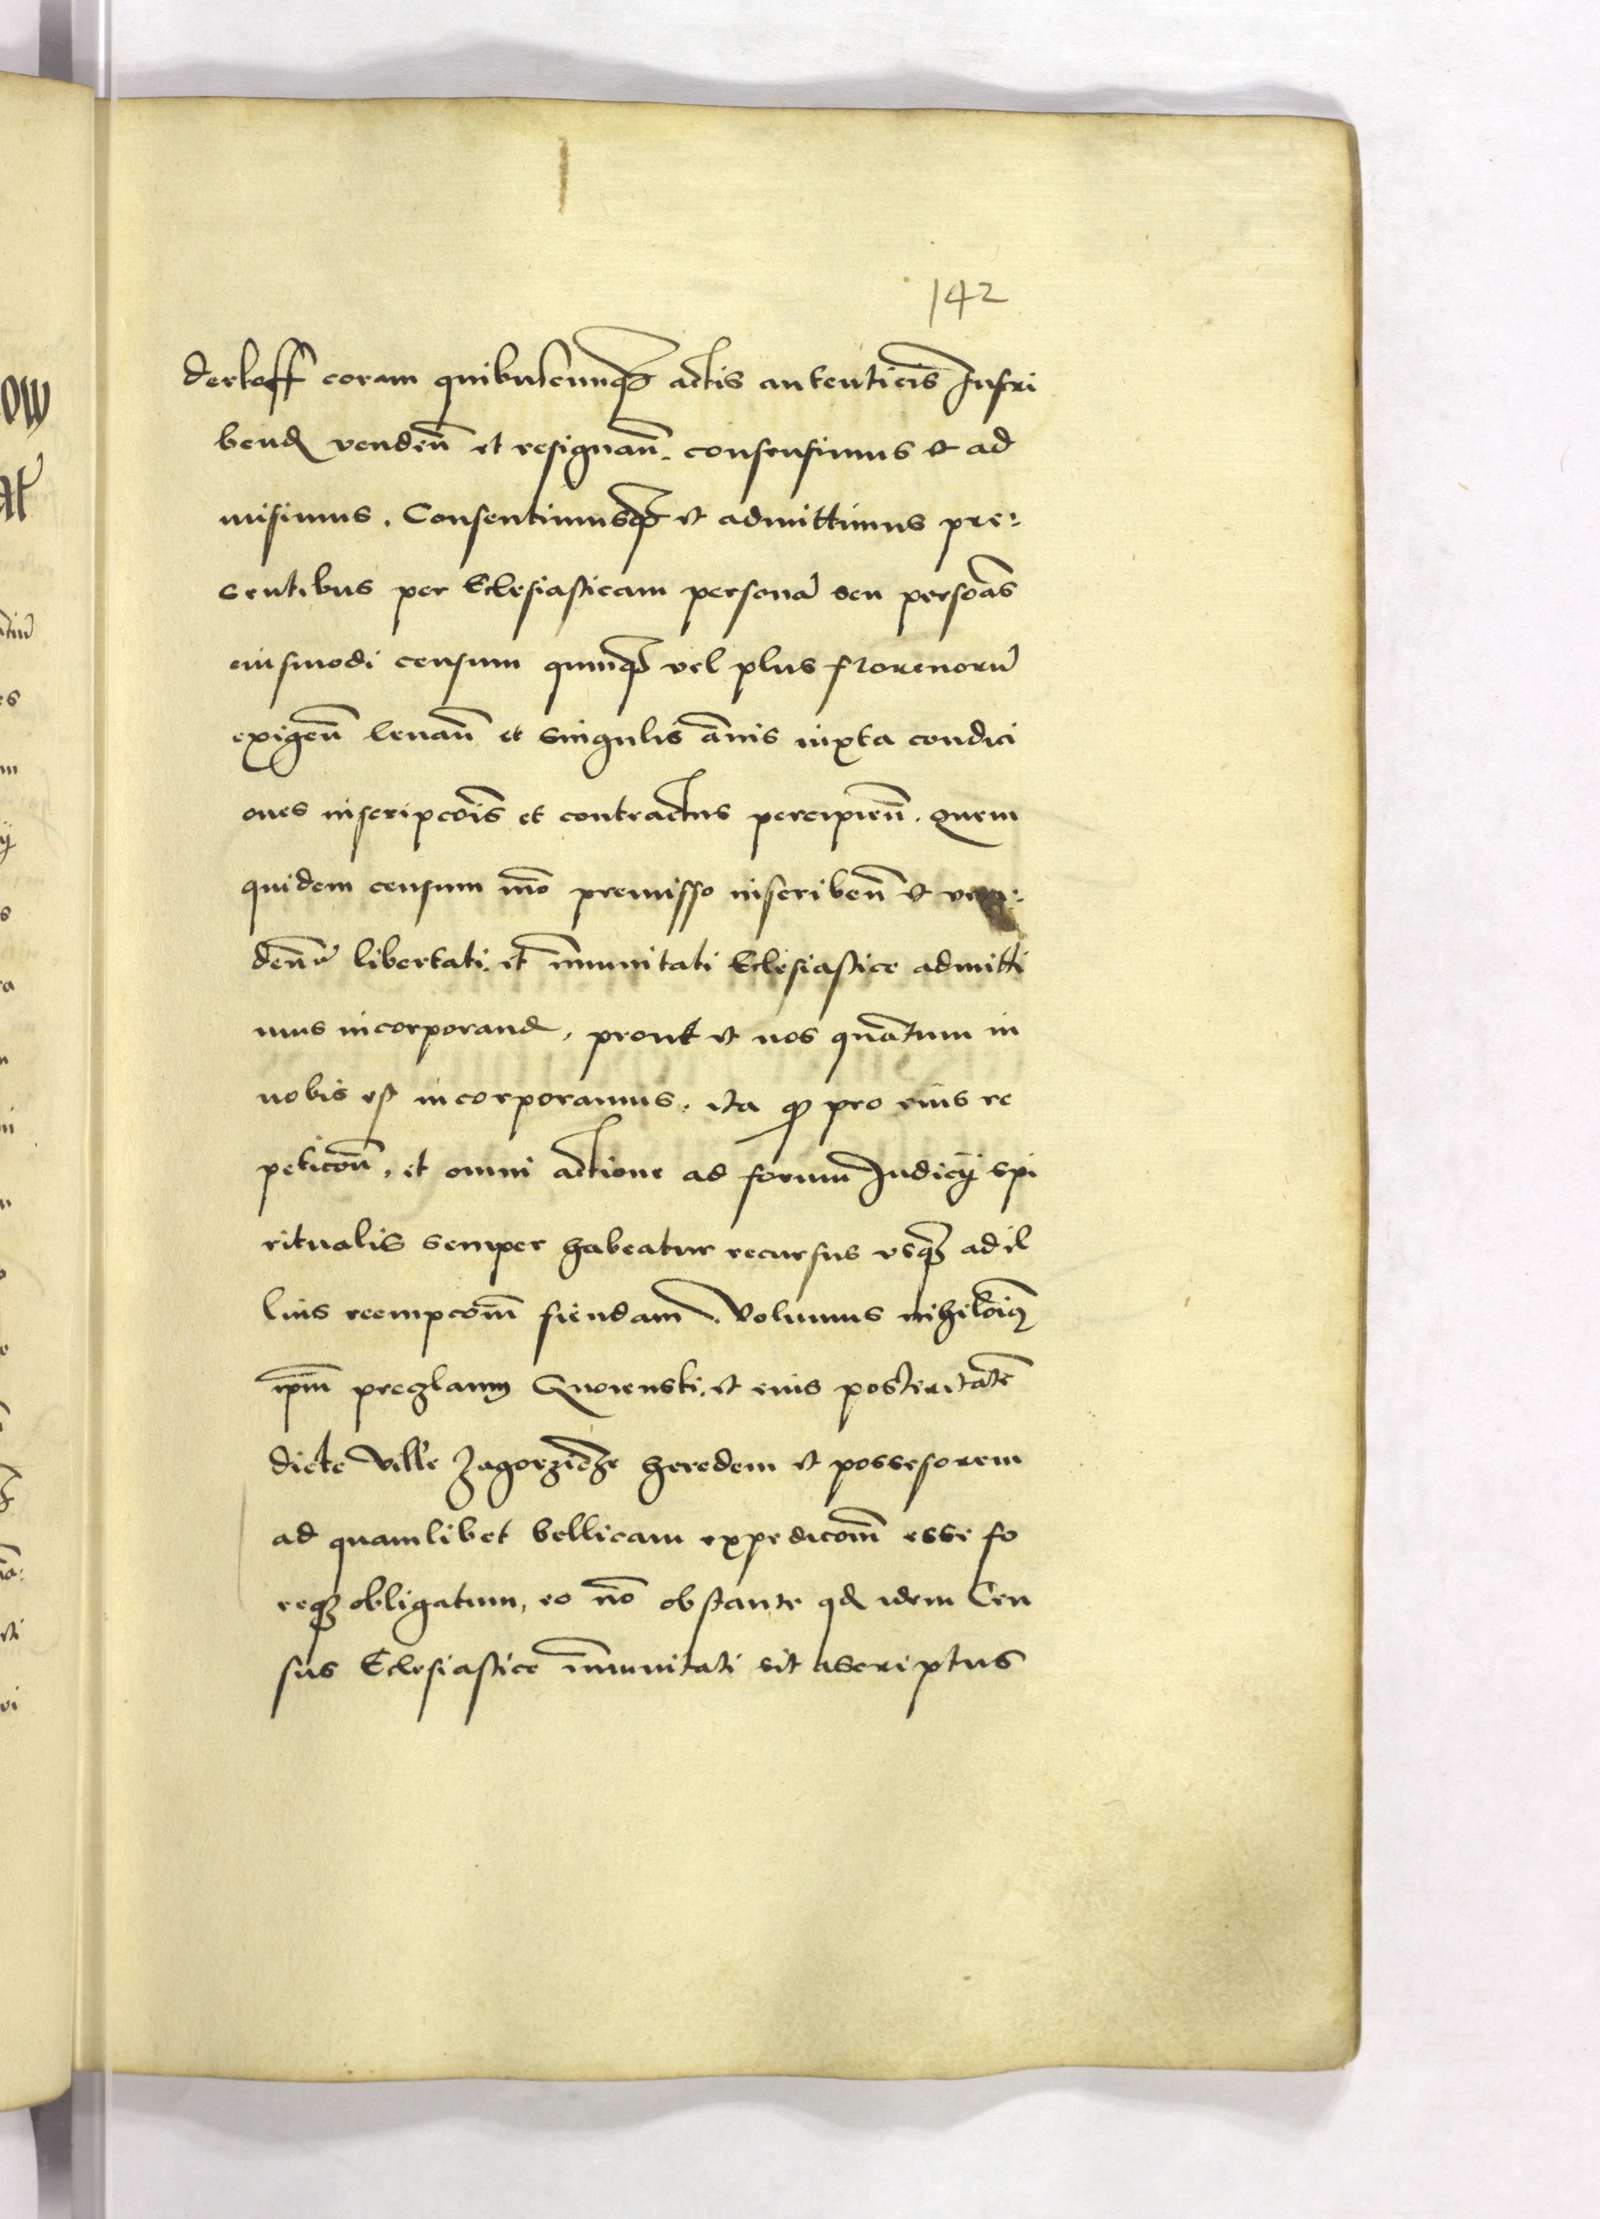 142
derkoff coram quibuscunq̃ actis autenticis Inscri
bend vendeñ et resignañ. consensimus et ad
misimus. Consentimusq̃ et admittimus pre:
sentibus per Eclesiasticam personã seu personas
eiusmodi censum quinq̃ vel plus florenorũ
exigeñ leuañ et singulis ãnis iuxta condici
ones inscripcõis et contractus percipieñ. Quem
quidem censum mõ premisso inscribeñ et ven:
deñ libertati et ĩmunitati Eclesiastice admitti
mus incorporand, prout et nos quantum in
nobis est incorporamus. ita ꝙ pro eius re
peticõñ, et omni actione ad forum Judicij spi
ritualis semper habeatur recursus vsq̃ ad il
lius reempcõm̃ fiendam. Volumus nihilõiꝰ
ip̃m preczlaum Gnoienski. et eius posteritatẽ
dicte ville Zagorzicze heredem et possesorem
ad quamlibet bellicam expedicõm̃ esse fo
req̃ obligatum, eo nõ obstante qd idem Cen
sus Eclesiastice ĩmunitati sit ascriptus